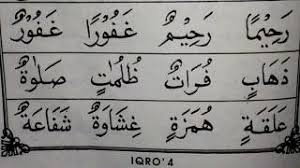 رَحِيْمًا رَحِيْمٌ غَفُوْرًا غَفُوْرٌ
ذَهَابٍ فُرَاتٌ ظُلُمَاتٍ صَلٰوةٌ
عَلَقَةٍ هُمَزَةٍ غِشَاوَةٌ شَفَاعَةٌ
IQRO' 4